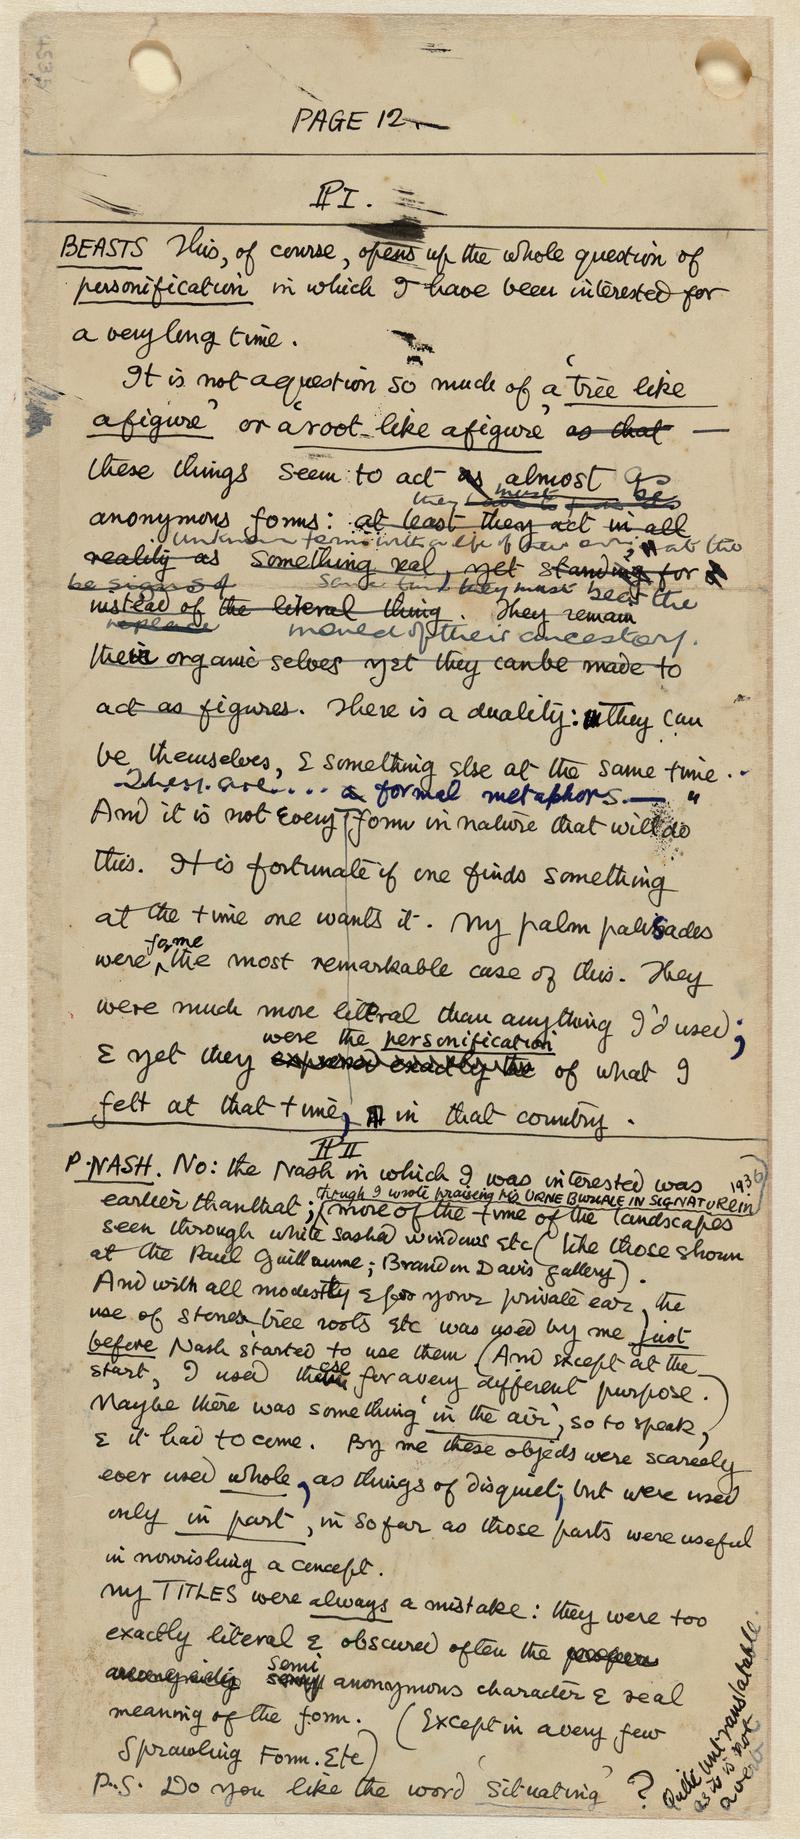 PAGE 12
PI.
BEASTS This, of course, opens up the whole question of
personification in which I have been interested for
a very long time.
It is not a question so much of a 'tree like
a figure' or a 'root like a figure' as that —
these things seem to act as almost as
they must be
anonymous forms: at least they act in all
reality as something real, yet standing for
be signs of
instead of the literal thing. They remain
replace moned of their ancestory.
their organic selves yet they can be made to
act as figures. There is a duality: they can
be themselves, & something else at the same time..
These are.... a formal metaphors.— "
And it is not every form in nature that will do
this. It is fortunate if one finds something
at the time one wants it. My palm palisades
for me
were the most remarkable case of this. They
were much more literal than anything I'd used;
were the personification
& yet they expressed exactly the of what I
felt at that time, in that country.
PII
P. NASH. No: the Nash in which I was interested was
1936
though I wrote praising his URNE BURIALE IN SIGNATURE in
earlier than that; (more of the time of the landscapes
seen through white sashed windows etc (like those shown
at the Paul Guillaume; Brandon Davis gallery).
And with all modestly & for your private ear, the
use of stones tree roots etc was used by me just
before Nash started to use them (And except at the
start, I used these for a very different purpose.)
Maybe there was something 'in the air', so to speak,
& it had to come. By me these objects were scarcely
ever used whole, as things of disquiet; but were used
only in part, in so far as those parts were useful
in nourishing a concept.
My TITLES were always a mistake: they were too
exactly literal & obscured often the
semi
anonymous character & real
meaning of the form. (Except in a very few
Sprawling Form. Etc)
P.S. Do you like the word 'Situating' ?
Quite untranslatable
as it is not
a verb